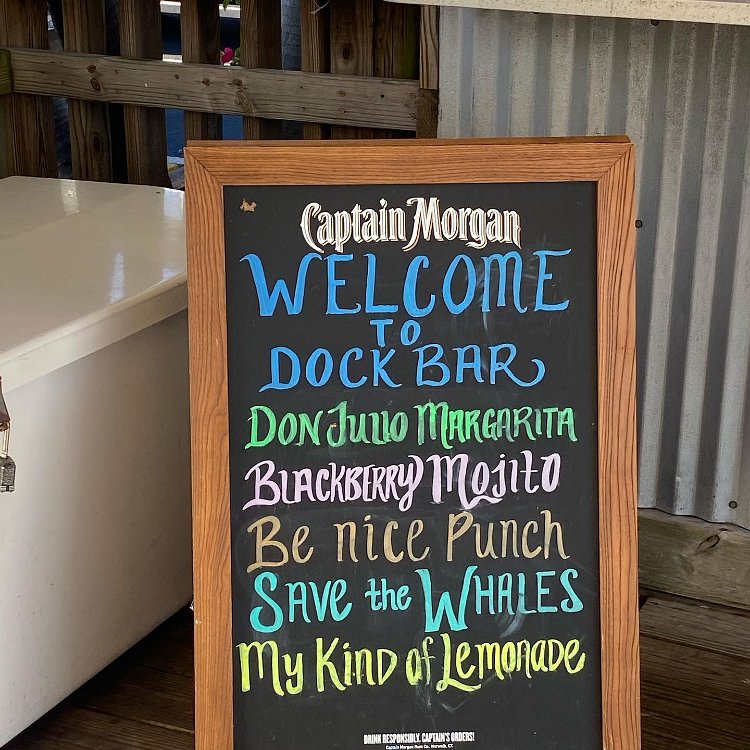 Captain Morgan
WELCOME
TO
DOCK BAR
DON JULIO MARGARITA
BLACKBERRY MOJITO
Be nice Punch
SAVE the WHALES
My KIND of Lemonade
DRINK RESPONSIBLY. CAPTAIN'S ORDERS!
Captain Morgan Rum Co. Norwalk, CT.